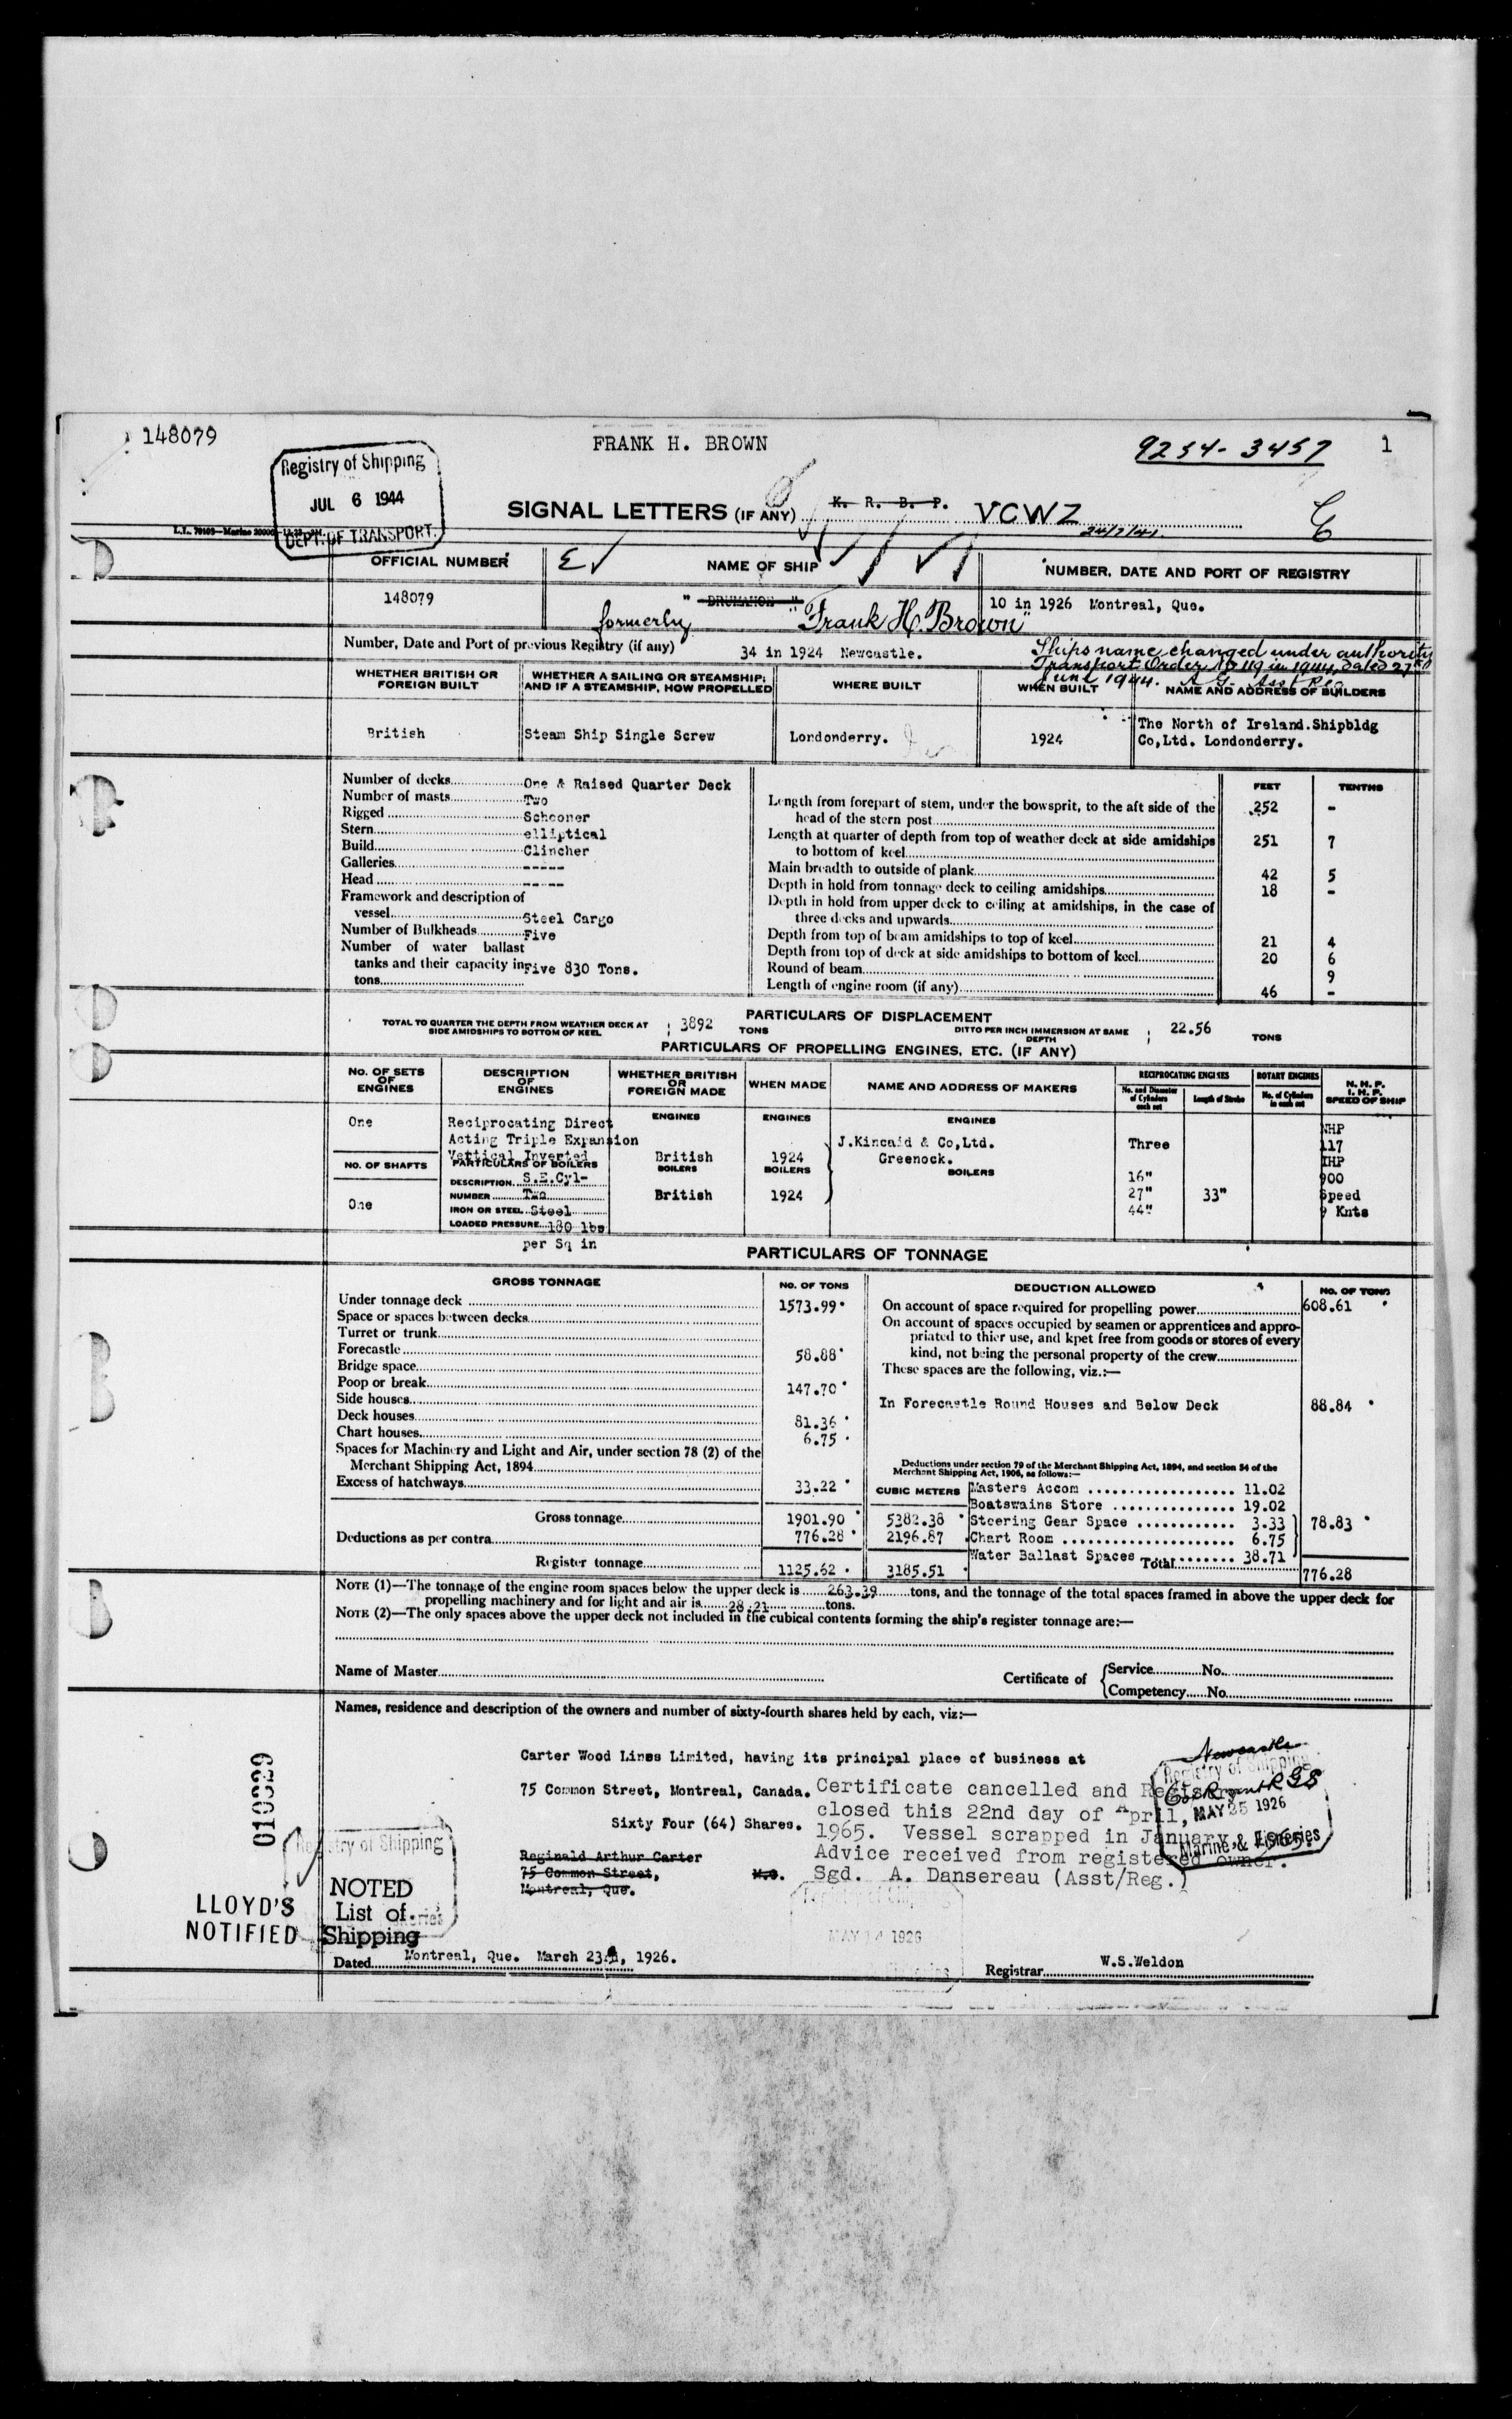 148079
FRANK H. BROWN
9254-3457
1
Registry of Shipping
JUL 6 1944
DEPT. OF TRANSPORT.
SIGNAL LETTERS (IF ANY) K. R. B. P. VCWZ
24/7/41.
OFFICIAL NUMBER
NAME OF SHIP
NUMBER, DATE AND PORT OF REGISTRY
148079
formerly "Frank H. Brown"
10 in 1926 Montreal, Que.
Number, Date and Port of previous Registry (if any)
34 in 1924 Newcastle.
Ships name changed under authority
Transport Order No 119 in 1944, dated 27th
June 1944. A G. Asst Reg
WHETHER BRITISH OR FOREIGN BUILT
WHETHER A SAILING OR STEAMSHIP; AND IF A STEAMSHIP, HOW PROPELLED
WHERE BUILT
WHEN BUILT
NAME AND ADDRESS OF BUILDERS
British
Steam Ship Single Screw
Londonderry.
1924
The North of Ireland.Shipbldg
Co,Ltd. Londonderry.
Number of decks One & Raised Quarter Deck
Number of masts Two
Rigged Schooner
Stern elliptical
Build Clincher
Galleries -----
Head -----
Framework and description of
vessel Steel Cargo
Number of Bulkheads Five
Number of water ballast
tanks and their capacity in Five 830 Tons.
tons
FEET TENTHS
Length from forepart of stem, under the bowsprit, to the aft side of the 252 -
head of the stern post
Length at quarter of depth from top of weather deck at side amidships 251 7
to bottom of keel
Main breadth to outside of plank 42 5
Depth in hold from tonnage deck to ceiling amidships 18 -
Depth in hold from upper deck to ceiling at amidships, in the case of
three decks and upwards
Depth from top of beam amidships to top of keel 21 4
Depth from top of deck at side amidships to bottom of keel 20 6
Round of beam 9
Length of engine room (if any) 46 -
PARTICULARS OF DISPLACEMENT
TOTAL TO QUARTER THE DEPTH FROM WEATHER DECK AT SIDE AMIDSHIPS TO BOTTOM OF KEEL 3892 TONS
DITTO PER INCH IMMERSION AT SAME DEPTH 22.56 TONS
PARTICULARS OF PROPELLING ENGINES, ETC. (IF ANY)
No. OF SETS OF ENGINES
DESCRIPTION OF ENGINES
WHETHER BRITISH OR FOREIGN MADE
WHEN MADE
NAME AND ADDRESS OF MAKERS
RECIPROCATING ENGINES
No. and Diameter of Cylinders each set
Length of Stroke
ROTARY ENGINES
No. of Cylinders in each set
N. H. P.
I. H. P.
SPEED OF SHIP
One
Reciprocating Direct
Acting Triple Expansion
Vertical Inverted
ENGINES
British
ENGINES
1924
ENGINES
J.Kincaid & Co,Ltd.
Greenock.
Three
NHP
117
IHP
900
Speed
9 Knts
NO. OF SHAFTS
One
PARTICULARS OF BOILERS
DESCRIPTION S.E.Cyl-
NUMBER Two
IRON OR STEEL Steel
LOADED PRESSURE 180 lbs
per Sq in
BOILERS
British
BOILERS
1924
BOILERS
16"
27" 33"
44"
PARTICULARS OF TONNAGE
GROSS TONNAGE
NO. OF TONS
Under tonnage deck 1573.99
Space or spaces between decks
Turret or trunk
Forecastle 58.88
Bridge space
Poop or break 147.70
Side houses
Deck houses 81.36
Chart houses 6.75
Spaces for Machinery and Light and Air, under section 78 (2) of the
Merchant Shipping Act, 1894
Excess of hatchways 33.22
Gross tonnage 1901.90
Deductions as per contra 776.28
Register tonnage 1125.62
CUBIC METERS
5382.38
2196.87
3185.51
DEDUCTION ALLOWED
No. OF TONS
On account of space required for propelling power 608.61
On account of spaces occupied by seamen or apprentices and appro-
priated to thier use, and kpet free from goods or stores of every
kind, not being the personal property of the crew
These spaces are the following, viz.:—
In Forecastle Round Houses and Below Deck 88.84
Deductions under section 79 of the Merchant Shipping Act, 1894, and section 54 of the
Merchant Shipping Act, 1906, as follows:—
Masters Accom 11.02
Boatswains Store 19.02
Steering Gear Space 3.33 78.83
Chart Room 6.75
Water Ballast Spaces 38.71
Total 776.28
NOTE (1)—The tonnage of the engine room spaces below the upper deck is 263.39 tons, and the tonnage of the total spaces framed in above the upper deck for
propelling machinery and for light and air is 28.21 tons.
NOTE (2)—The only spaces above the upper deck not included in the cubical contents forming the ship's register tonnage are:—
Name of Master
Certificate of
Service No.
Competency No.
Names, residence and description of the owners and number of sixty-fourth shares held by each, viz:—
Carter Wood Lines Limited, having its principal place of business at
75 Common Street, Montreal, Canada.
Sixty Four (64) Shares.
Reginald Arthur Carter
75 Common Street,
Montreal, Que.
M.O.
Certificate cancelled and Registry
closed this 22nd day of April,
1965. Vessel scrapped in January, 1965.
Advice received from registered owner.
Sgd. A. Dansereau (Asst/Reg.)
Newcastle
Registry of Shipping
MAY 25 1926
Marine & Fisheries
010329
Registry of Shipping
LLOYD'S
NOTIFIED
NOTED
List of
Shipping
MAY 14 1926
Dated Montreal, Que. March 23rd, 1926.
Registrar W.S.Weldon